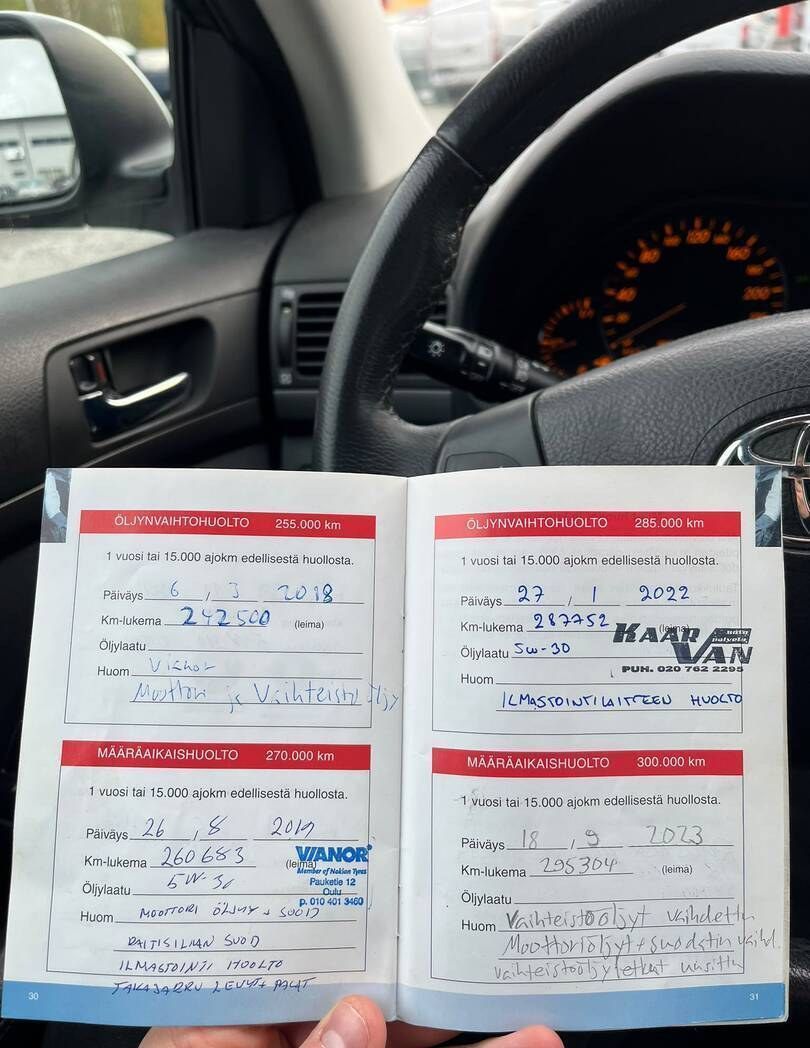 ÖLJYNVAIHTOHUOLTO 255.000 km
1 vuosi tai 15.000 ajokm edellisestä huollosta.
Päiväys 6 / 3 2018
Km-lukema 242500 (leima)
Öljylaatu
Huom Vianor
Moottori ja Vaihteisto öljy
MÄÄRÄAIKAISHUOLTO 270.000 km
1 vuosi tai 15.000 ajokm edellisestä huollosta.
Päiväys 26 , 8 2019
Km-lukema 260683 (leima)
VIANOR
Member of Nokian Tyres
Pauketie 12
Oulu
p. 010 401 3460
Öljylaatu 5W-30
Huom MOOTTORI ÖLJYT + SUOD
RAITISILMAN SUOD
ILMASTOINTI HUOLTO
TAKAJARRU LEVYT + PALAT
30
ÖLJYNVAIHTOHUOLTO 285.000 km
1 vuosi tai 15.000 ajokm edellisestä huollosta.
Päiväys 27 / 1 2022
Km-lukema 287752 (leima)
KAAR VAN
PUH. 020 762 2295
Öljylaatu 5W-30
Huom
ILMASTOINTILAITTEEN HUOLTO
MÄÄRÄAIKAISHUOLTO 300.000 km
1 vuosi tai 15.000 ajokm edellisestä huollosta.
Päiväys 18 , 9 2023
Km-lukema 295304 (leima)
Öljylaatu
Huom Vaihteistoöljyt vaihdettu
Moottoriöljyt + suodatin vaihd.
vaihteistoöljyletkut uusittu
31
40
80
120
160
200